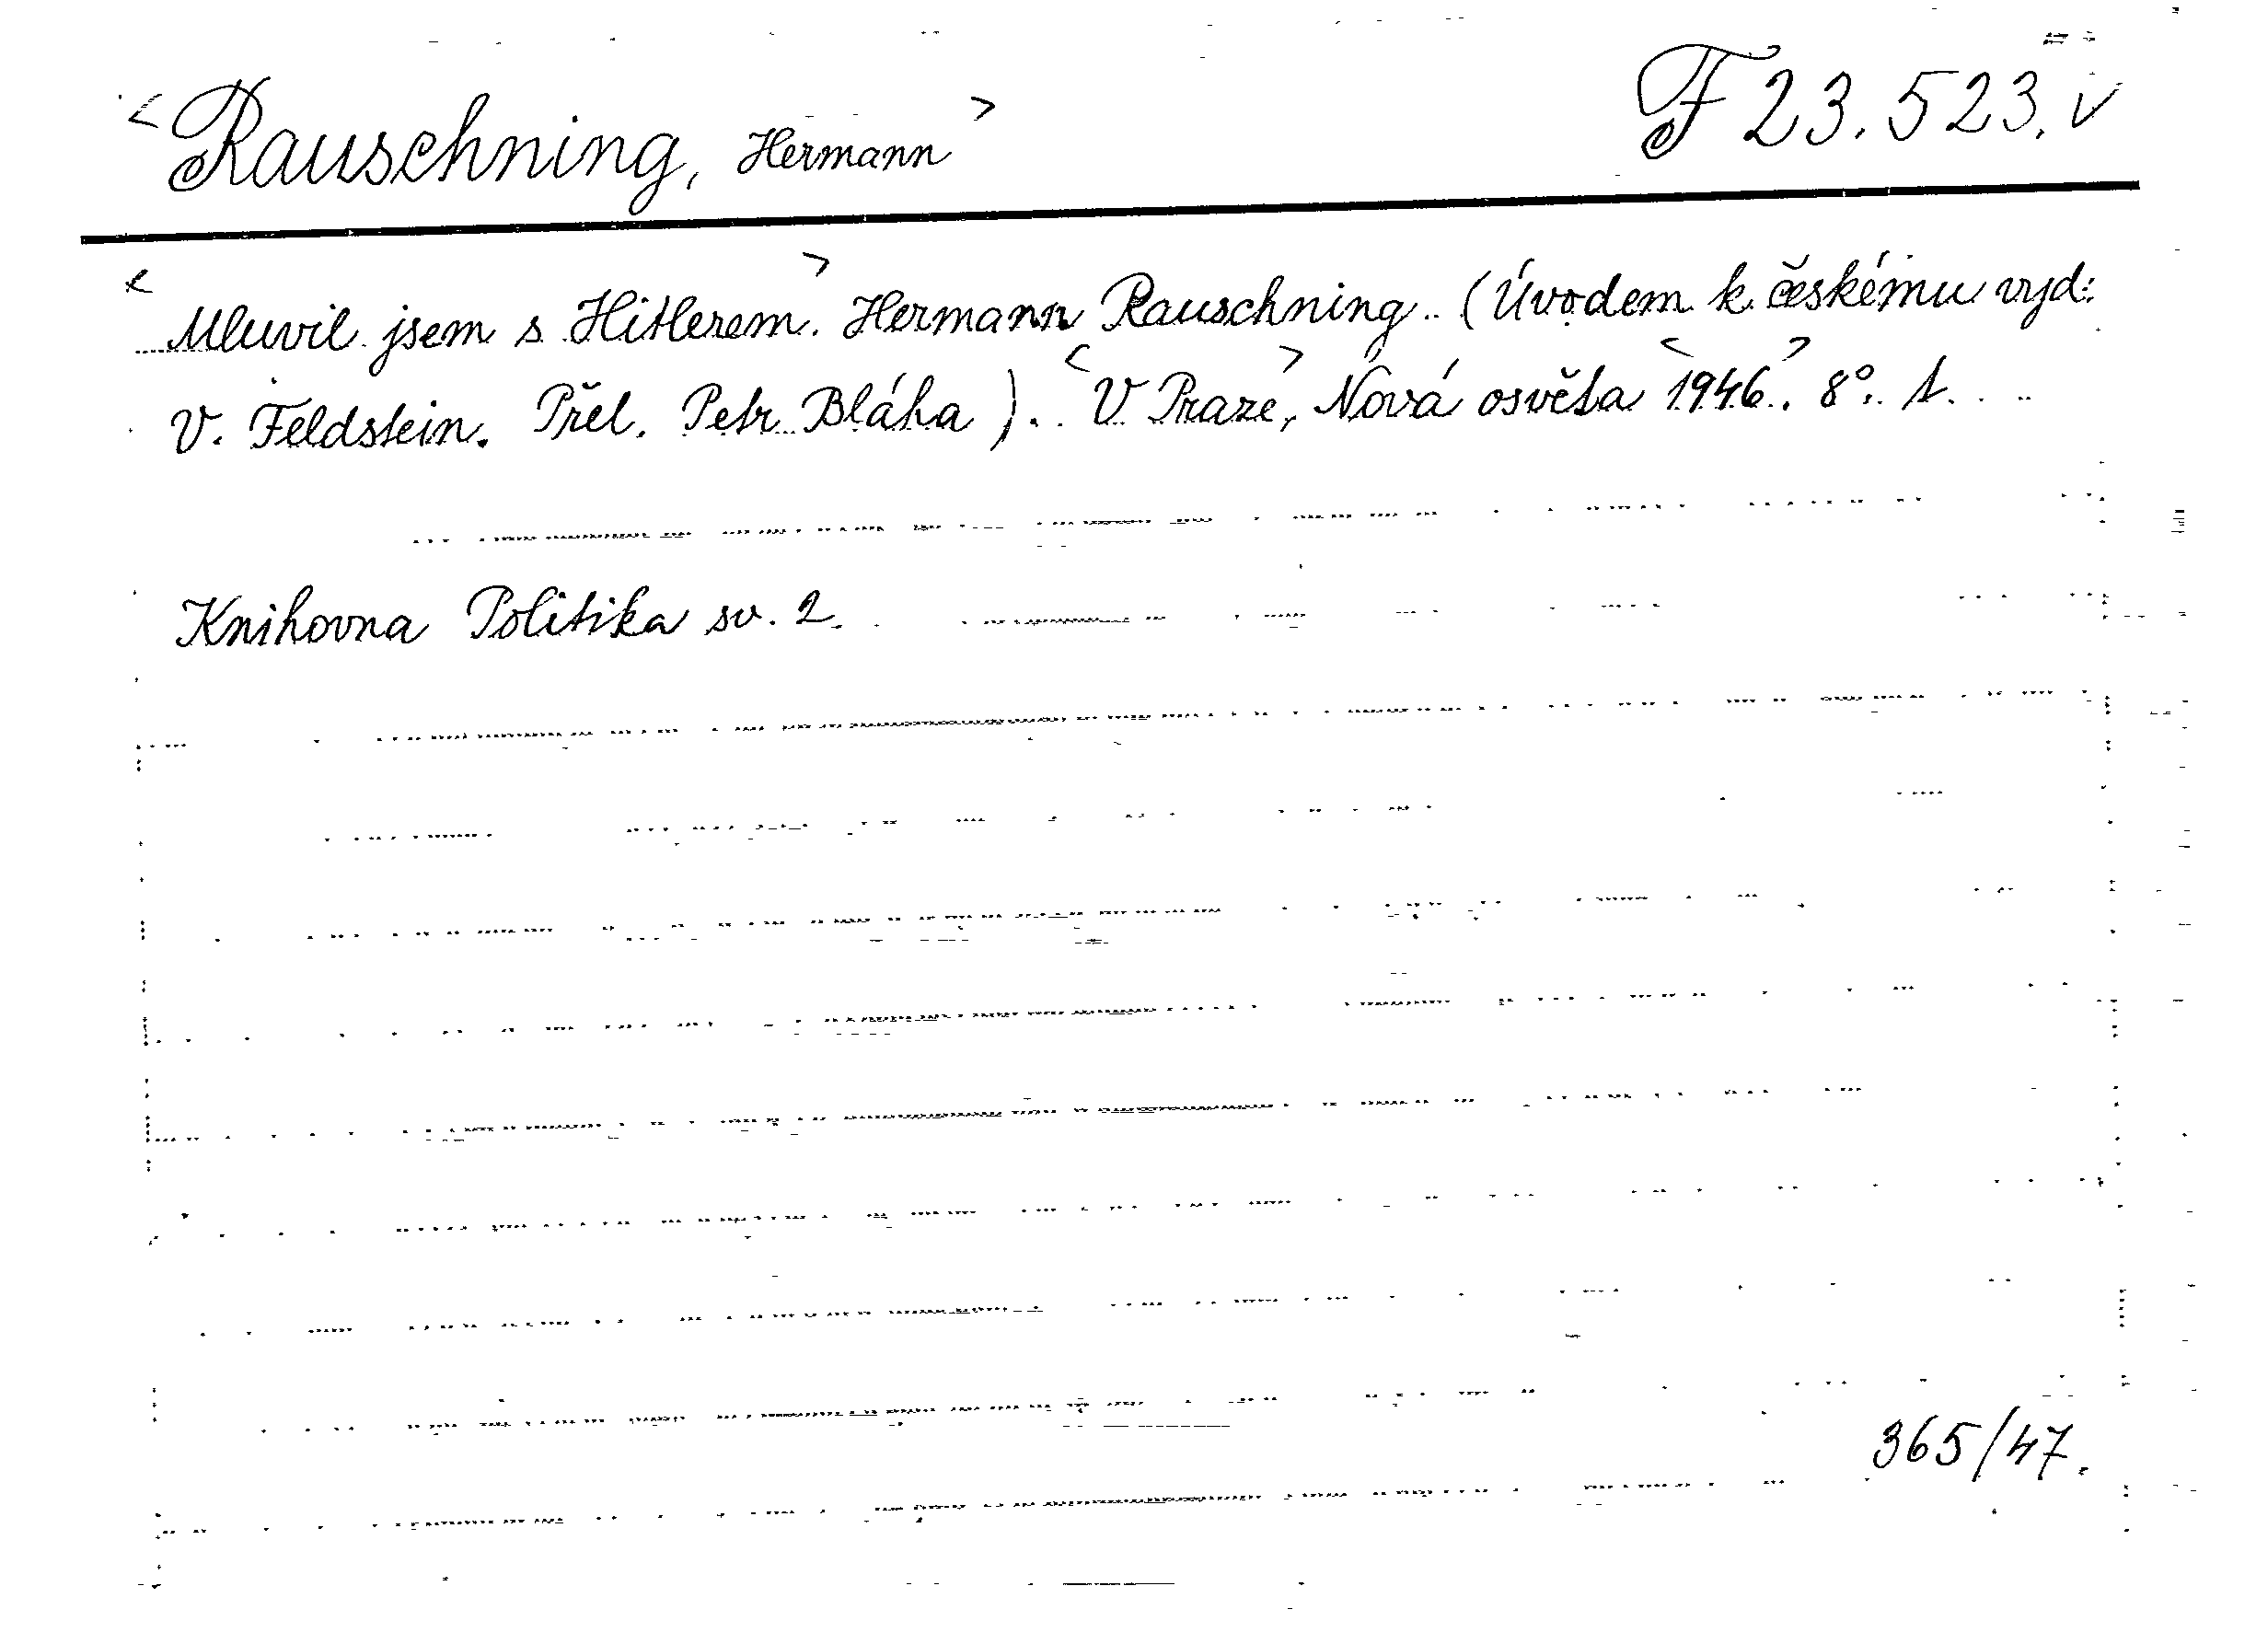 <Rauschning, Hermann> F 23.523. v
<Mluvil jsem s Hitlerem>. Hermann Rauschning. (Úvodem k českému vyd:
V. Feldstein. Přel. Petr Bláha). <V Praze>, Nová osvěta <1946>. 8°. 1.
Knihovna Politika sv. 2.
365/47.